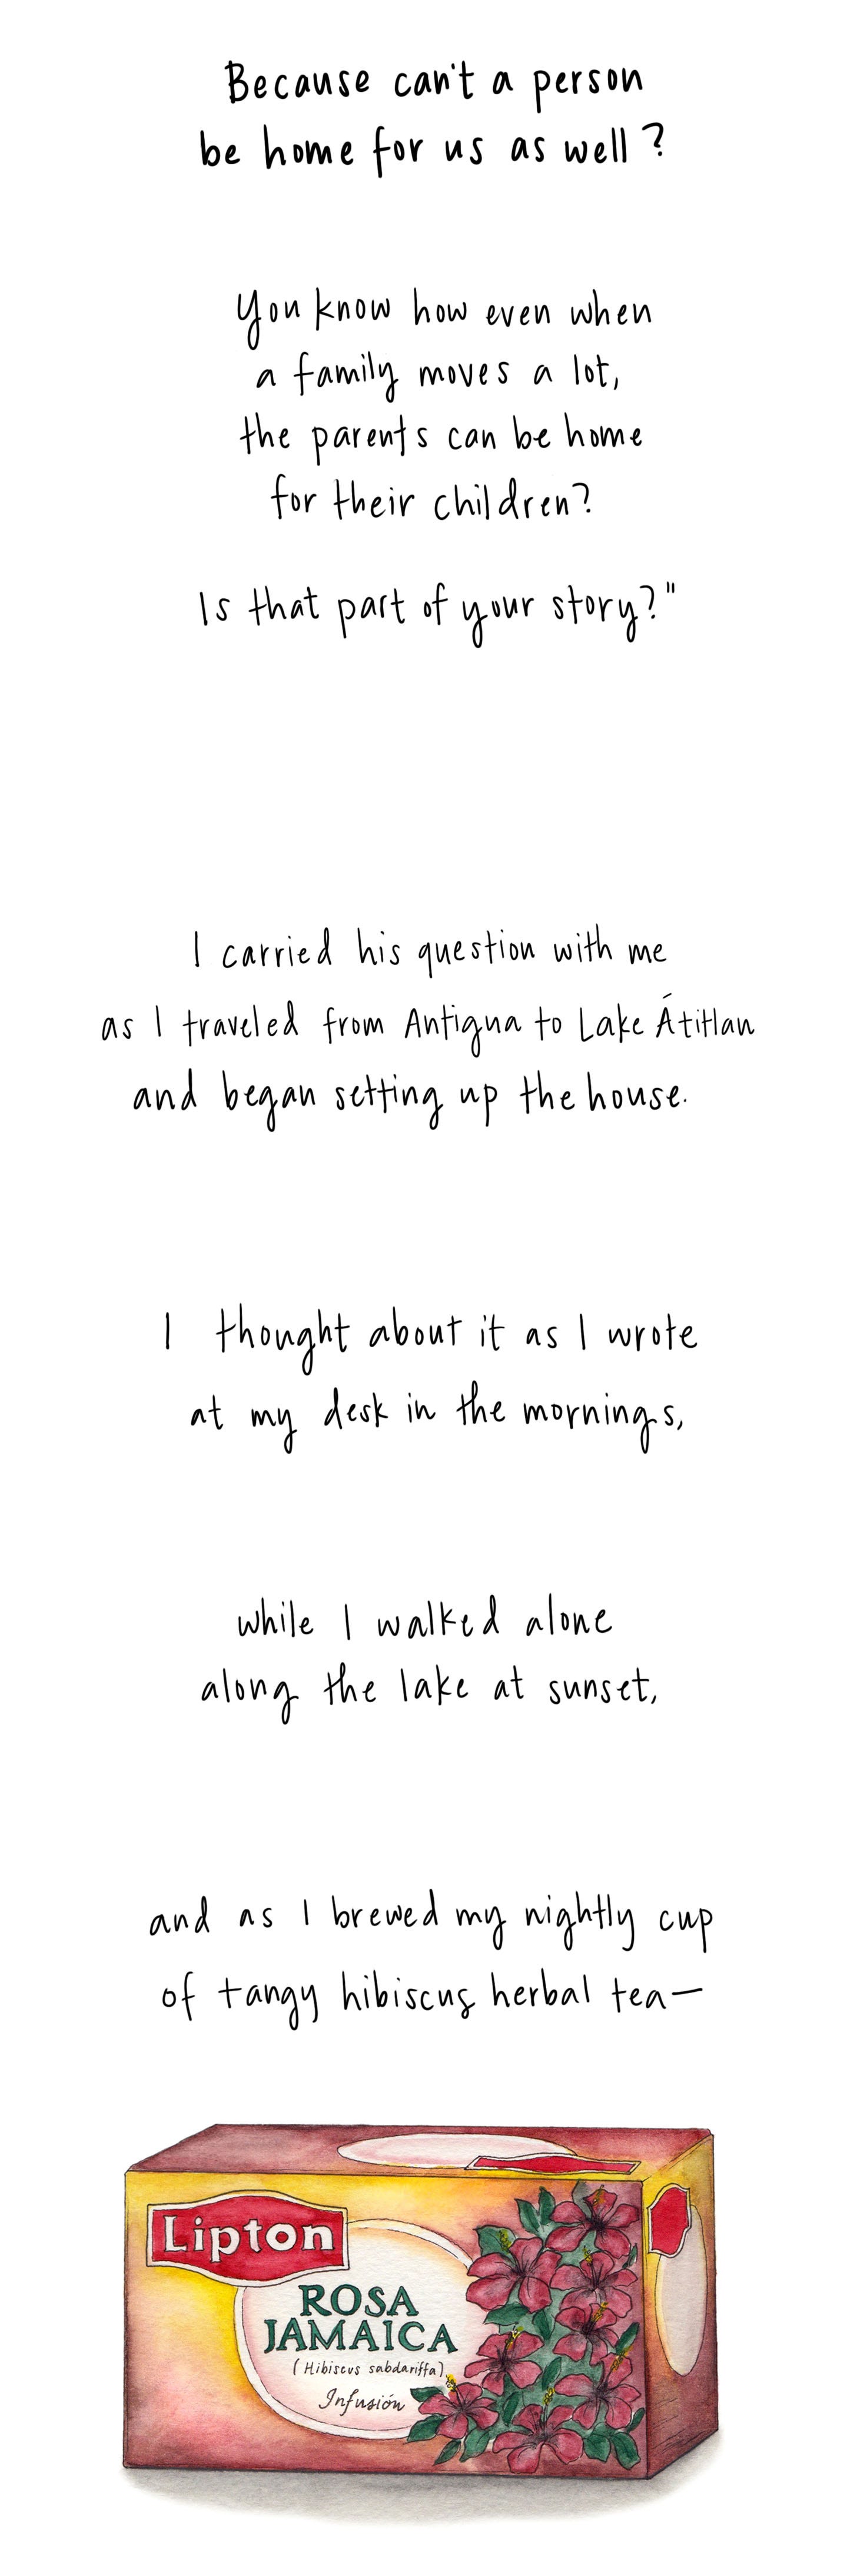 Because can't a person
be home for us as well?
You know how even when
a family moves a lot,
the parents can be home
for their children?
Is that part of your story?"
I carried his question with me
as I traveled from Antigua to Lake Átitlan
and began setting up the house.
I thought about it as I wrote
at my desk in the mornings,
while I walked alone
along the lake at sunset,
and as I brewed my nightly cup
of tangy hibiscus herbal tea—
Lipton
ROSA
JAMAICA
(Hibiscus sabdariffa)
Infusión